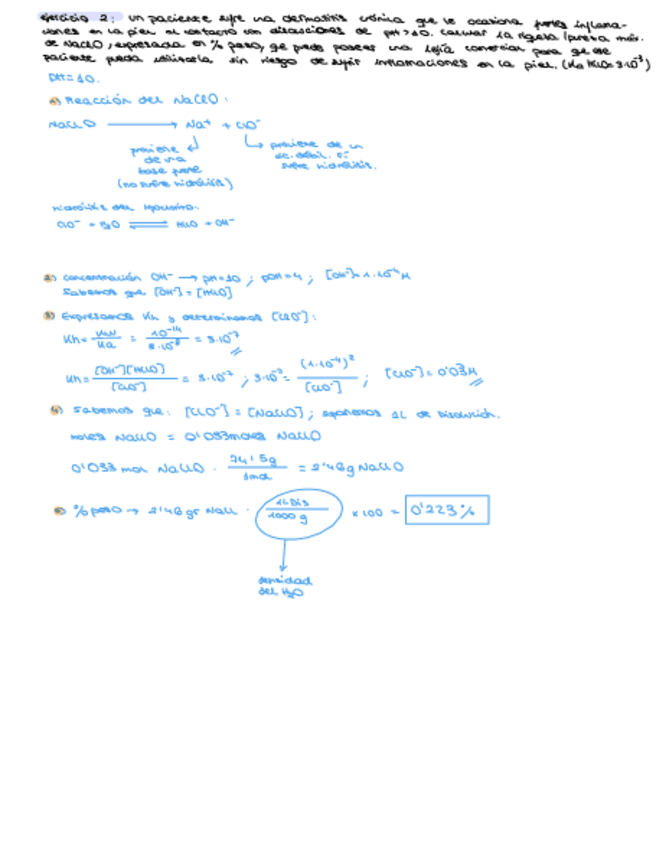 Ejercicio 2: un paciente sufre una dermatitis crónica que le ocasiona fuertes inflama-
ciones en la piel al contacto con disoluciones de pH>10. Calcular la riqueza (pureza máx.
de NaClO, expresada en % peso, que puede poseer una lejía comercial para que este
paciente pueda utilizarla sin riesgo de sufrir inflamaciones en la piel. (Ka
pH=10.
1) Reacción del NaClO:
NaClO → Na⁺ + ClO⁻
proviene de una base fuerte (no sufre hidrólisis)
proviene de un ác. débil. Sí sufre hidrólisis.
Hidrólisis del hipoclorito:
ClO⁻ + H₂O ⇌ HClO + OH⁻
2) concentración OH⁻ → pH=10 ; pOH=4 ; [OH⁻]=1·10⁻⁴M
Sabemos que [OH⁻] = [HClO]
3) Expresamos Kh y determinamos [ClO⁻]:
Kh = Kw/Ka = 10⁻¹⁴/ = 3·10⁻⁷
Kh = [OH⁻][HClO]/[ClO⁻] = 3·10⁻⁷ ; = (1·10⁻⁴)²/[ClO⁻] ; [ClO⁻] = 0'03M
4) Sabemos que: [ClO⁻] = [NaClO] ; suponemos 1L de disolución.
moles NaClO = 0'033moles NaClO
0'033 mol NaClO · 74'5g/1mol = 2'46g NaClO
5) %peso → 2'46gr · 1L Dis/1000 g × 100 = 0'223%
densidad
del H₂O